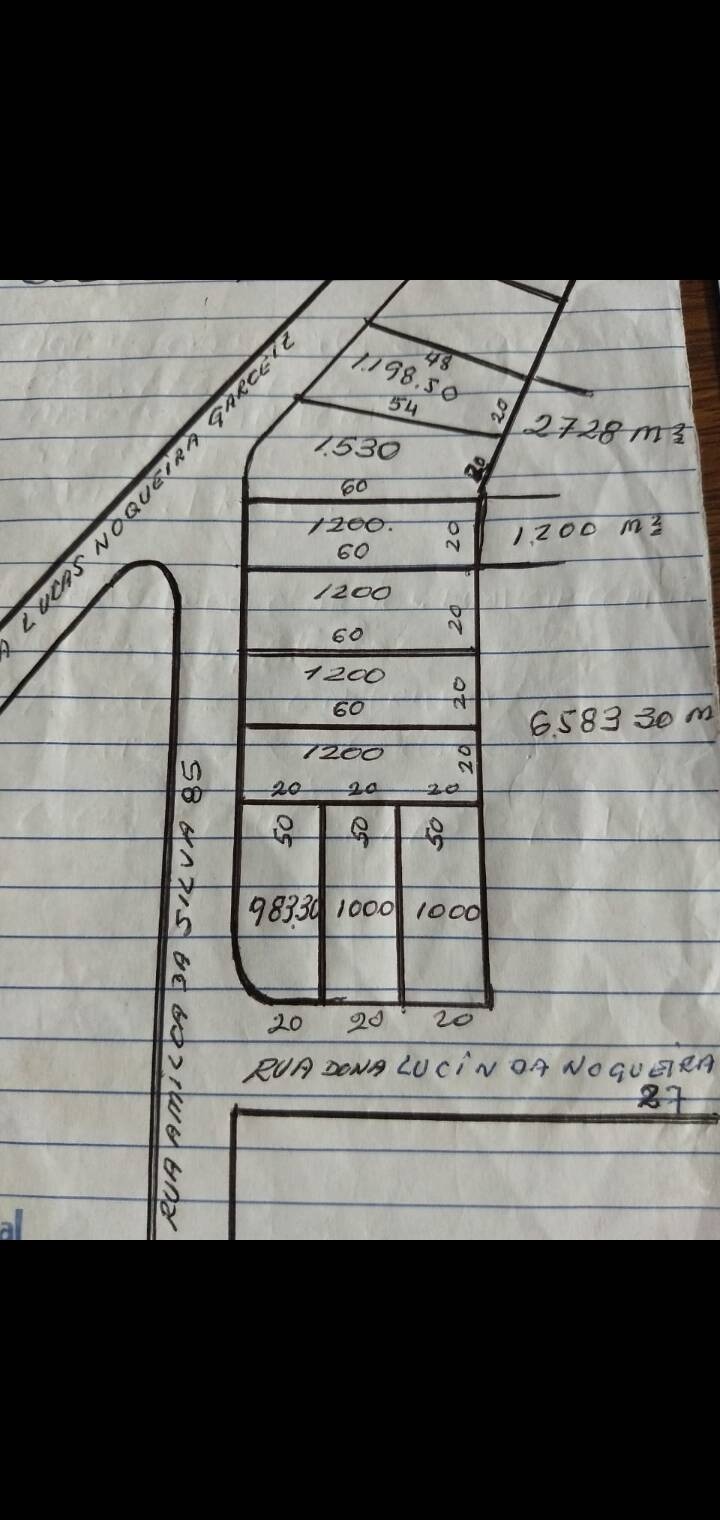 48
1.198.50
54
20
2728 m2
1.530
20
60
1200.
20
1,200 m2
60
1200
20
60
1200
20
60
6.583 30 m
1200
20
20 20 20
50 50 50
983.30 1000 1000
20 20 20
LUCAS NOGUEIRA GARCEIZ
RUA AMILCOA DA SILVA 85
RUA DONA LUCINDA NOGUEIRA
27
al